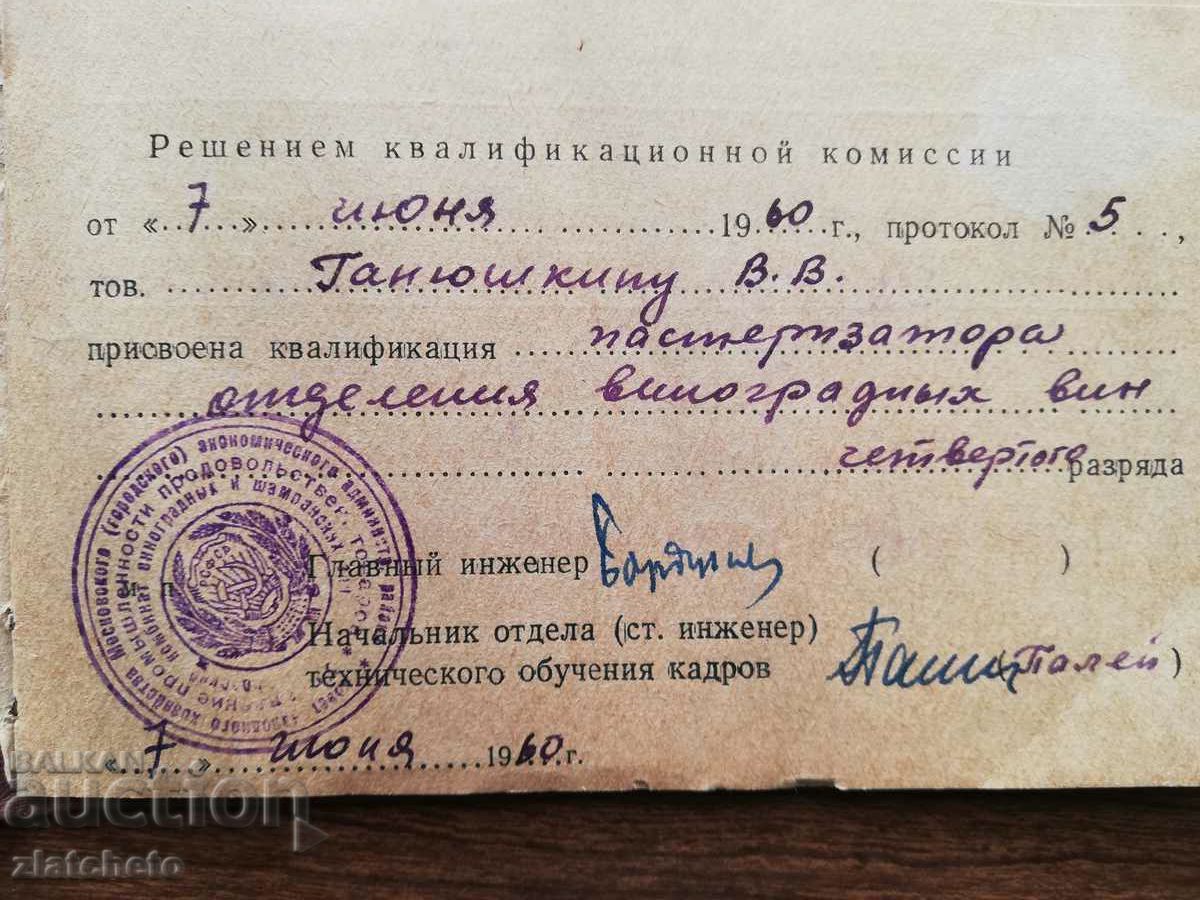 Решением квалификационной комиссии
от «7» июня 1960 г., протокол № 5,
тов. Ганюшкину В. В.
присвоена квалификация пастеризатора
отделения виноградных вин
четвертого разряда
Московского (городского) экономического администрат. района
промышленности продовольствен. товаров
комбинат виноградных и шампанских вин
народного хозяйства
РСФСР
М П
Главный инженер ( )
Начальник отдела (ст. инженер)
технического обучения кадров (Палей)
«7» июня 1960 г.
BALKAN
auction
zlatcheto